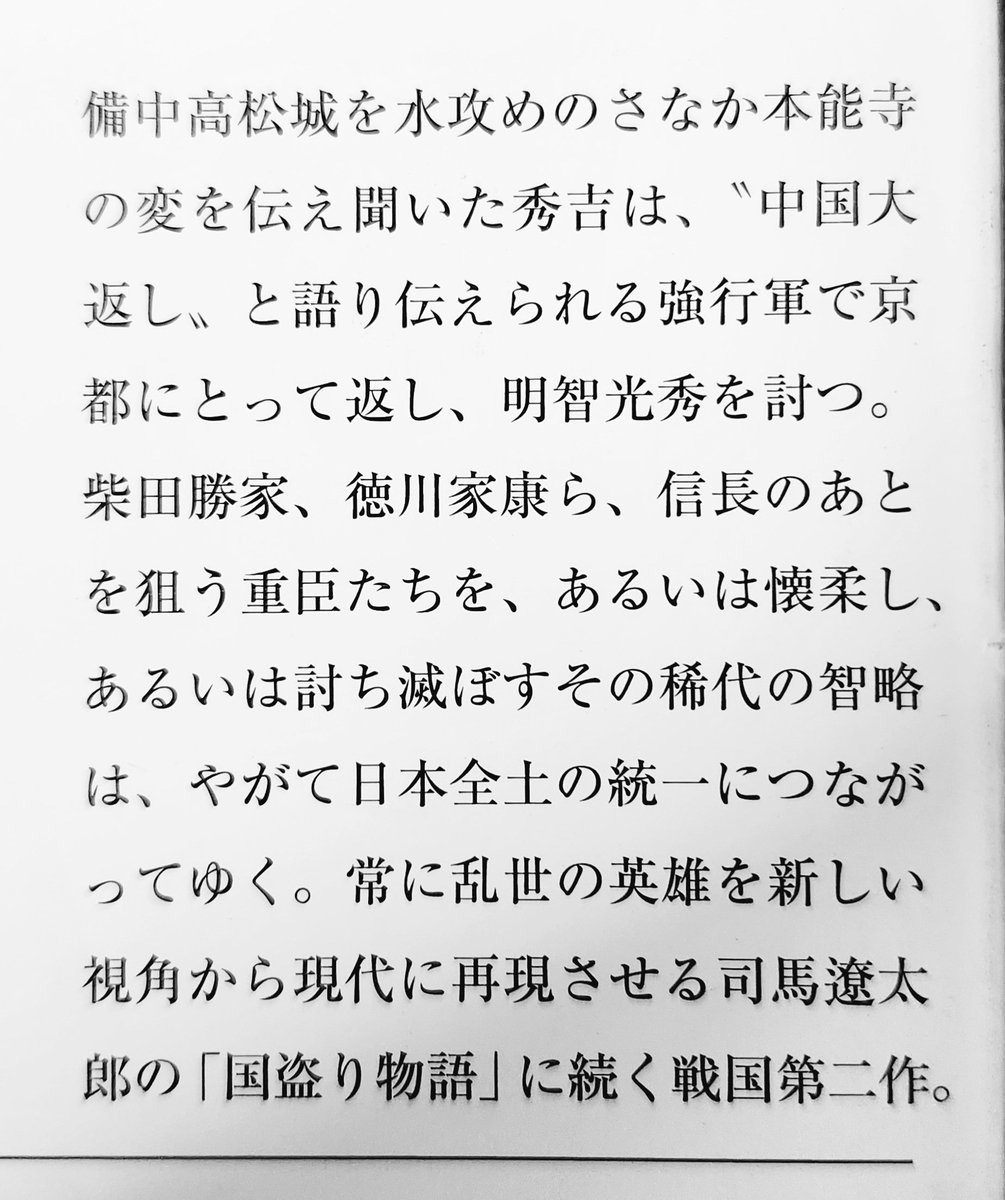 備中高松城を水攻めのさなか本能寺
の変を伝え聞いた秀吉は、〝中国大
返し〟と語り伝えられる強行軍で京
都にとって返し、明智光秀を討つ。
柴田勝家、徳川家康ら、信長のあと
を狙う重臣たちを、あるいは懐柔し、
あるいは討ち滅ぼすその稀代の智略
は、やがて日本全土の統一につなが
ってゆく。常に乱世の英雄を新しい
視角から現代に再現させる司馬遼太
郎の「国盗り物語」に続く戦国第二作。